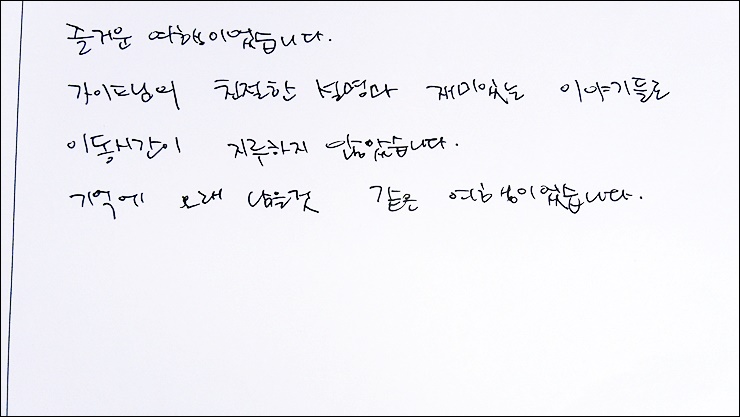 즐거운 여행이었습니다.
가이드님의 친절한 설명과 재미있는 이야기들로
이동시간이 지루하지 않았습니다.
기억에 오래 남을것 같은 여행이었습니다.